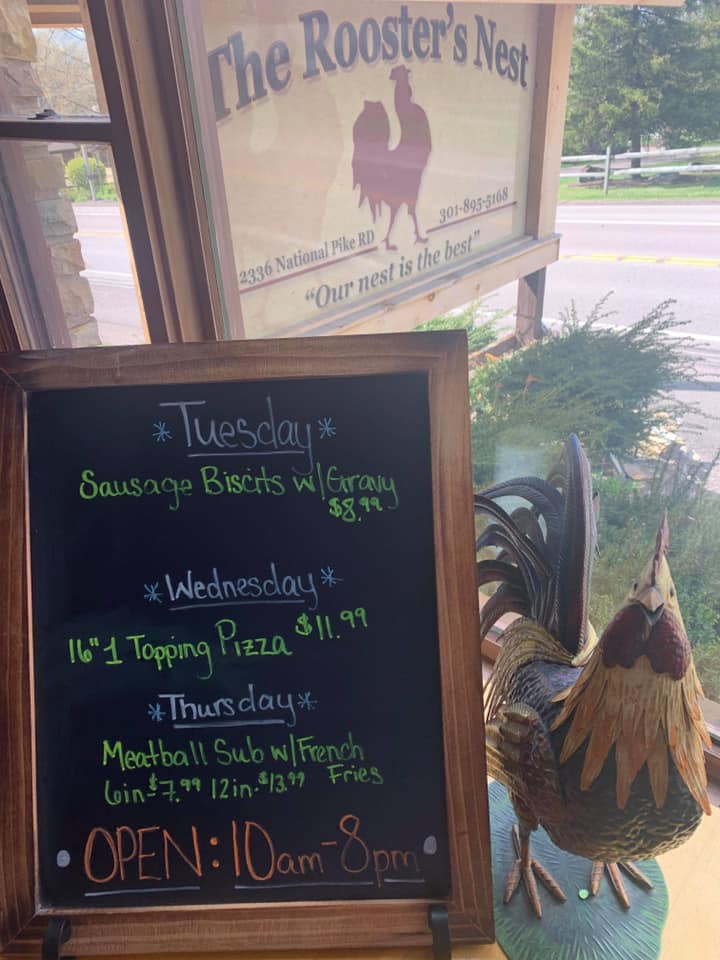 The Rooster's Nest
2336 National Pike RD
301-895-5168
"Our nest is the best"
*Tuesday*
Sausage Biscits w/Gravy
$8.99
*Wednesday*
16" 1 Topping Pizza $11.99
*Thursday*
Meatball Sub w/French
Fries
6in-$7.99 12in-$13.99
OPEN: 10am-8pm